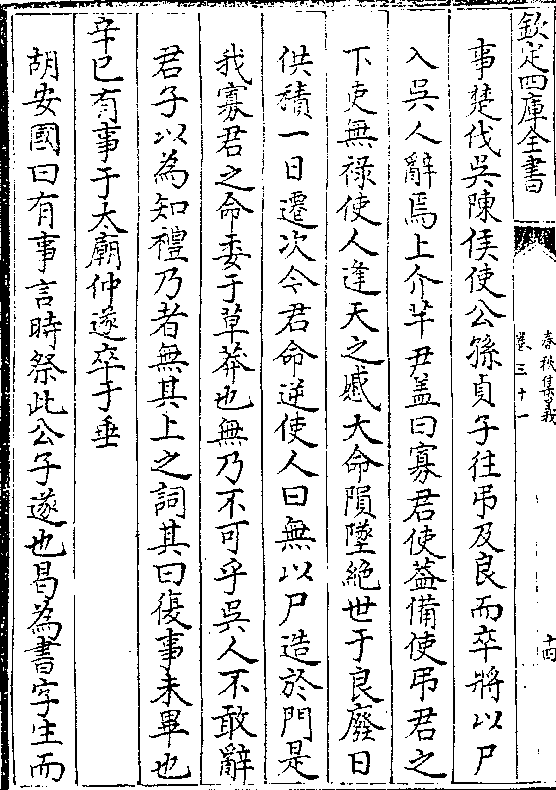 欽定四庫全書
春秋集義
卷三十一
十四
事楚伐吳陳侯使公孫貞子往弔及良而卒將以尸
入吳人辭焉上介芊尹盖曰寡君使葢備使弔君之
下吏無祿使人逢天之慼大命隕墜絶世于良廢日
供積一日遷次今君命逆使人曰無以尸造於門是
我寡君之命委于草莽也無乃不可乎吳人不敢辭
君子以為知禮乃者無其上之詞其曰復事未畢也
辛巳有事于太廟仲遂卒于垂
胡安國曰有事言時祭此公子遂也曷為書字生而